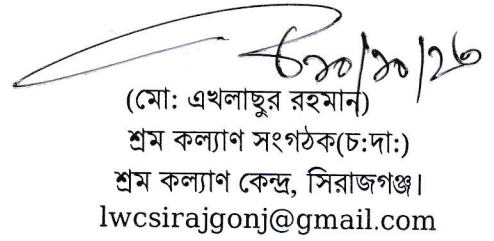 (মো: এখলাছুর রহমান)
শ্রম কল্যাণ সংগঠক(চ:দা:)
শ্রম কল্যাণ কেন্দ্র, সিরাজগঞ্জ।
lwcsirajgonj@gmail.com